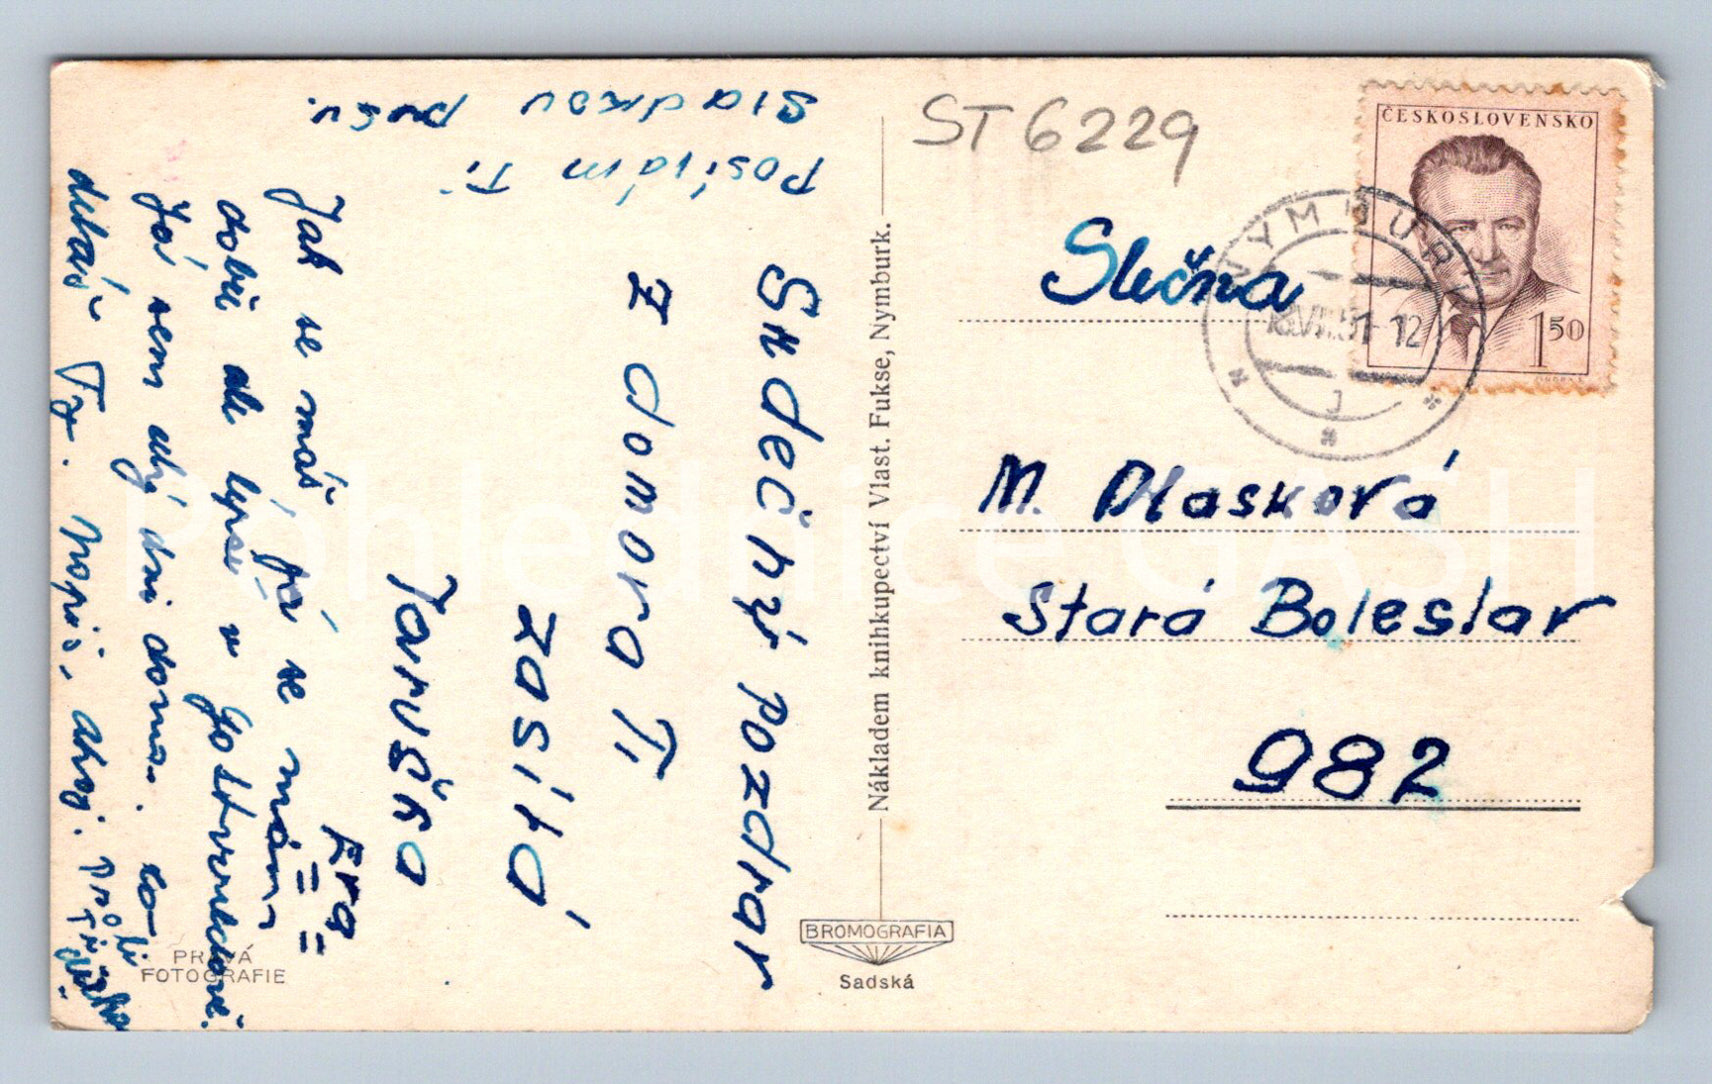 Posílám Ti
sladkou pusu.
Srdečný pozdrav
z domova Ti
zasílá
Jaruška
Jak se máš já se mám
dobře ale lépe v
Já sem celý dni doma. co
děláš Ty. Napiš, ahoj.
Nákladem knihkupectví Vlast. Fukse, Nymburk.
BROMOGRAFIA
Sadská
PRAVÁ
FOTOGRAFIE
ST 6229
ČESKOSLOVENSKO
1 50
NYMBURK
51-12
Slečna
M. Dlasková
Stará Boleslav
982
Pohlednice GASH